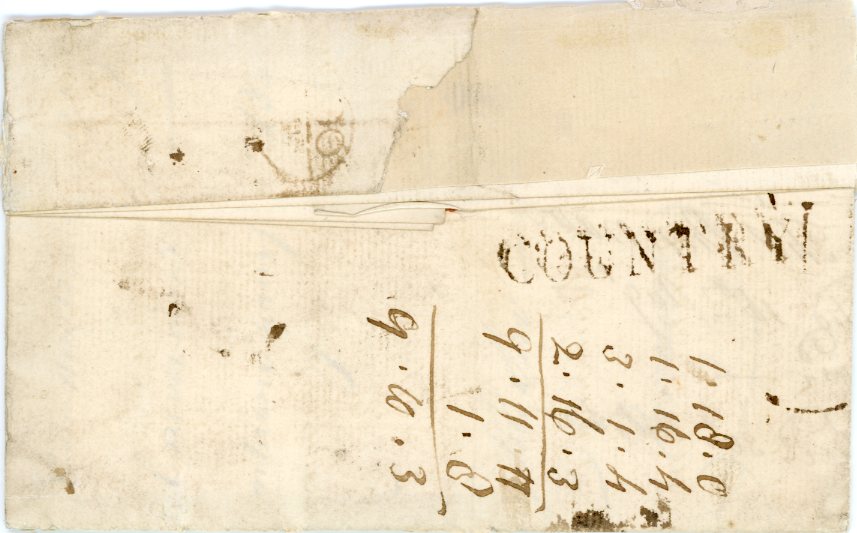 COUNTRY
1.18.0
1.16.4
3.1.4
2.16.3
9.11.11
1.8
9.10.3